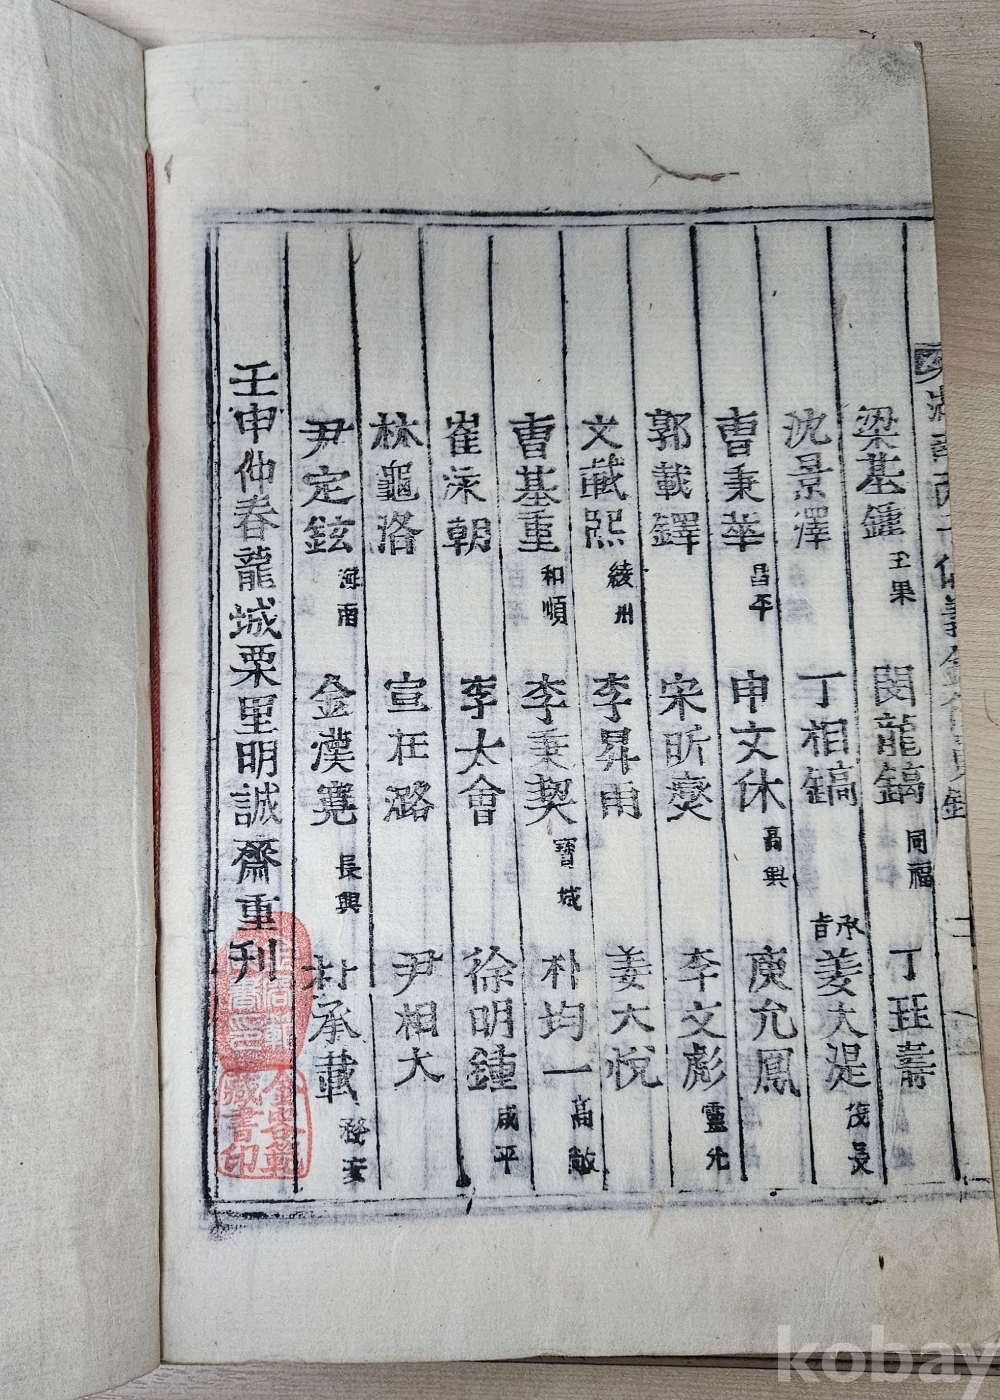 梁基鍾 玉果 閔龍鎬 同福 丁珏壽
沈景澤 丁相鎬 承旨 姜大湜 茂長
曺秉華 昌平 申文休 高興 庾允鳳
郭載鐸 宋昕燮 李文彪 靈光
文薉熙 綾州 李昇雨 姜大悅
曺基重 和順 李秉契 寶城 朴均一 高敞
崔泳朝 李太會 徐明鍾 咸平
林龜洛 宣在潞 尹相大
尹定鉉 海南 金漢寬 長興 朴承載 務安
壬申仲春龍城栗里明誠齋重刊
金容範
藏書印
kobay